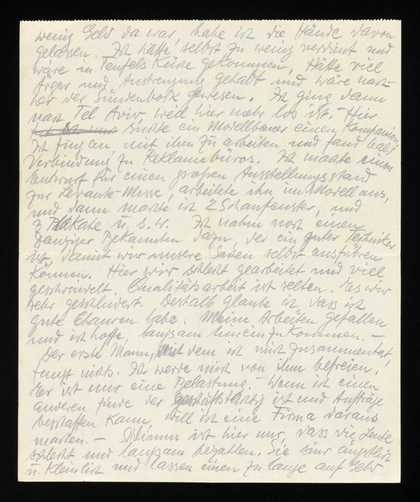 wenig Geld da war, habe ich die Hände davon
gelassen. Ich hätte selbst zu wenig verdient und
wäre in Teufels Küche gekommen, hätte viel
Ärger und Anstrengung gehabt und wäre nach-
her der Sündenbock gewesen. Ich ging dann
nach Tel Aviv, weil hier mehr los ist. Hier
suchte ein Modellbauer einen Kompagnon,
Ich fing an mit ihm zu arbeiten und fand bald
Verbindung zu Reklamebüros. Ich machte einen
Entwurf für einen großen Ausstellungsstand
zur Levante-Messe, arbeitete ihn im Modell aus,
und dann machte ich 2 Schaufenster, und
3 Plakate u.s.w. Ich nahm noch einen
Danziger Bekannten dazu, der ein guter Techniker
ist, damit wir unsere Sachen selbst ausführen
können. Hier wird schlecht gearbeitet und viel
geschwindelt. Qualitätsarbeit ist selten. Es wird
sehr geschludert. Deshalb glaube ich, dass ich
gute Chancen habe. Meine Arbeiten gefallen
und ich hoffe, langsam hineinzukommen. —
Der erste Mann, mit dem ich mich zusammentat,
taugt nichts. Ich werde mich von ihm befreien.
Er ist nur eine Belastung. — Wenn ich einen
anderen finde der geschäftstüchtig ist und Aufträge
beschaffen kann, will ich eine Firma daraus
machen. — Schlimm ist hier nur, dass die Leute
schlecht und langsam bezahlen. Sie sind ängstlich
u. kleinlich und lassen einen zu lange auf Geld